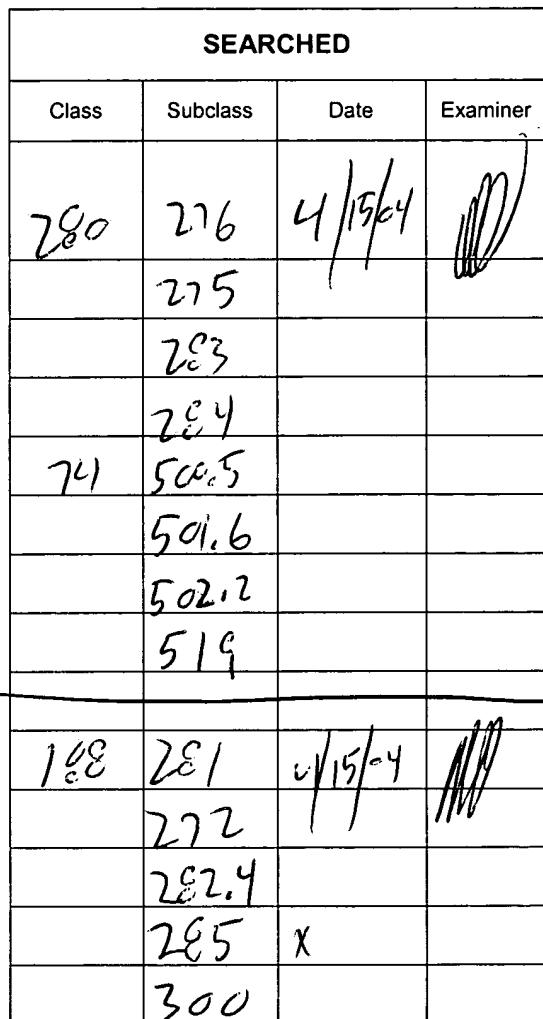 SEARCHED
Class Subclass Date Examiner
280 276 4/15/04
275
283
284
74 500.5
501.6
502.2
519
188 281 4/15/04
272
282.4
285 X
300